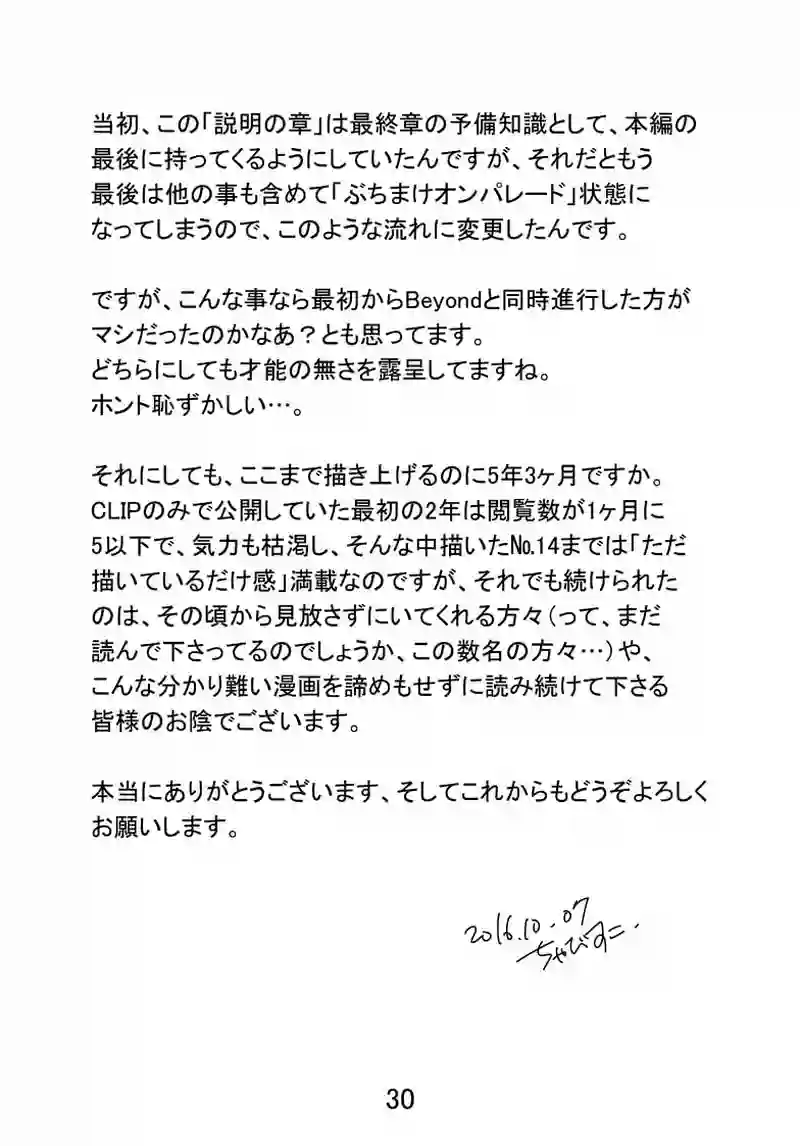 当初、この｢説明の章｣は最終章の予備知識として、本編の
最後に持ってくるようにしていたんですが、それだともう
最後は他の事も含めて｢ぶちまけオンパレード｣状態に
なってしまうので、このような流れに変更したんです。
ですが、こんな事なら最初からBeyondと同時進行した方が
マシだったのかなあ？とも思ってます。
どちらにしても才能の無さを露呈してますね。
ホント恥ずかしい…。
それにしても、ここまで描き上げるのに5年3ヶ月ですか。
CLIPのみで公開していた最初の2年は閲覧数が1ヶ月に
5以下で、気力も枯渇し、そんな中描いた№14までは｢ただ
描いているだけ感｣満載なのですが、それでも続けられた
のは、その頃から見放さずにいてくれる方々（って、まだ
読んで下さってるのでしょうか、この数名の方々…）や、
こんな分かり難い漫画を諦めもせずに読み続けて下さる
皆様のお陰でございます。
本当にありがとうございます、そしてこれからもどうぞよろしく
お願いします。
2016.10.07
ちゃびすこ.
30